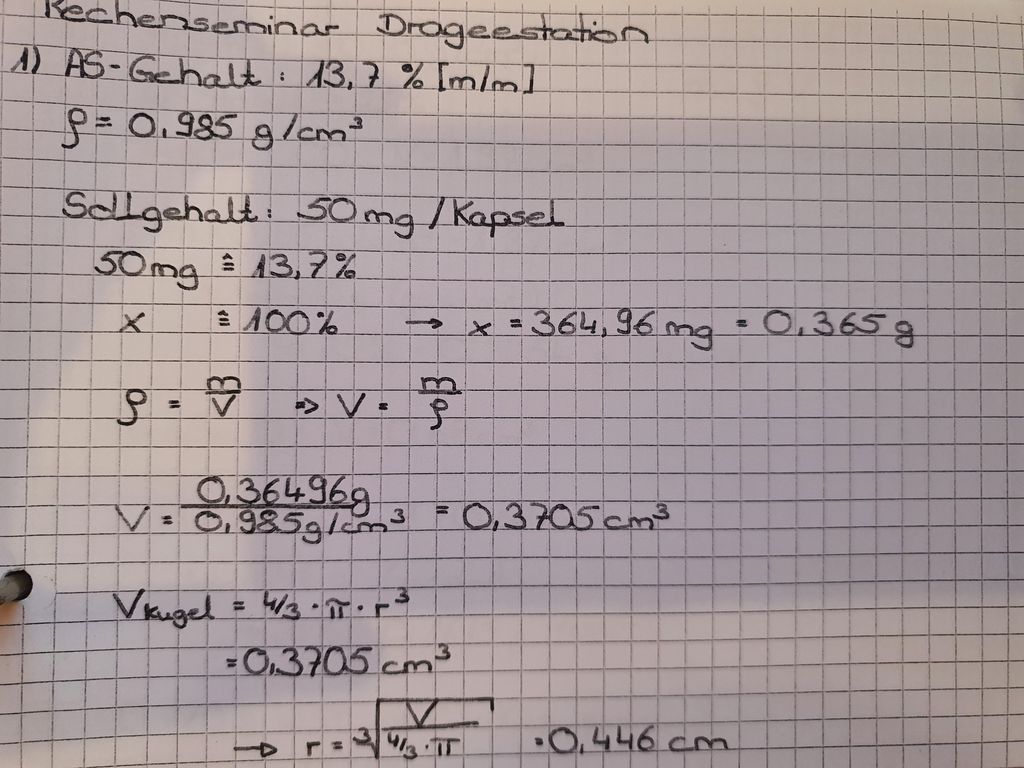 Rechenseminar Drageestation
1) AS-Gehalt: 13,7 % [m/m]
ρ = 0,985 g/cm³
Sollgehalt: 50 mg/Kapsel
50mg ≙ 13,7%
x ≙ 100% → x = 364,96 mg = 0,365 g
ρ = m/V ⇒ V = m/ρ
V = 0,36496g / 0,985g/cm³ = 0,3705 cm³
VKugel = 4/3 · π · r³
= 0,3705 cm³
→ r = ³√(V / 4/3 · π) = 0,446 cm